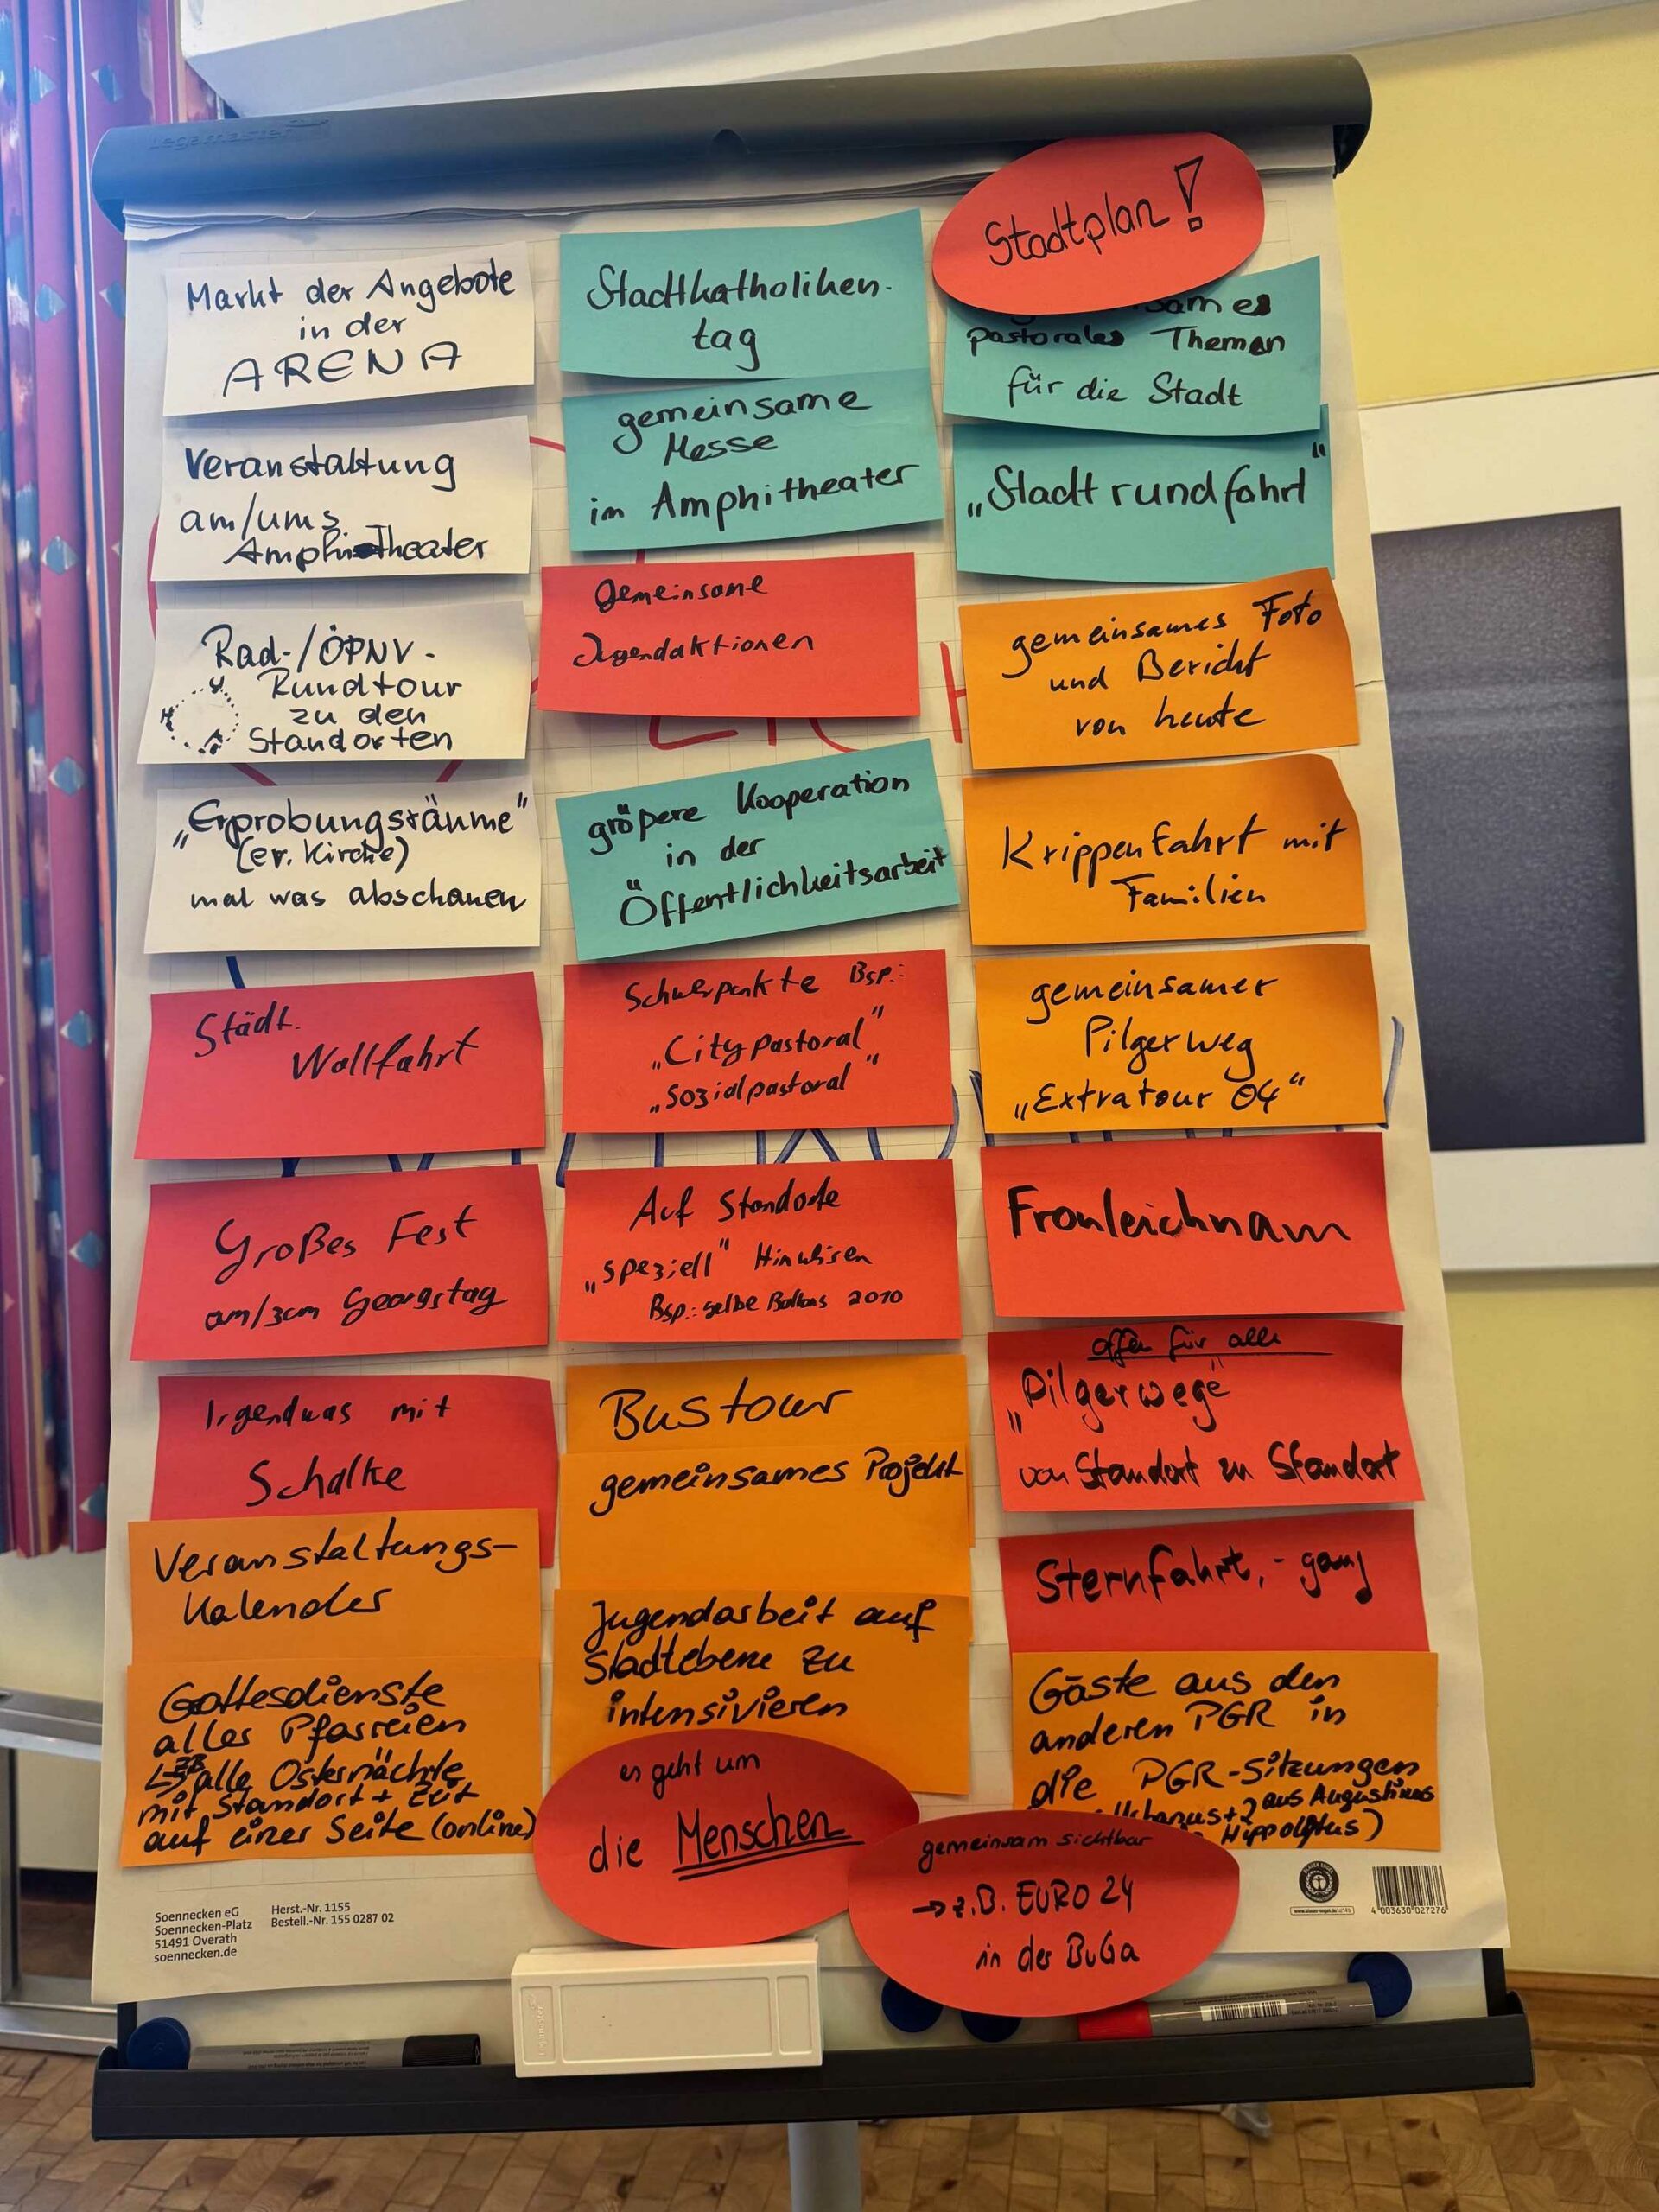 Legamaster
Markt der Angebote
in der
ARENA
Veranstaltung
am/ums
Amphitheater
Rad-/ÖPNV-
Rundtour
zu den
Standorten
H
„Erprobungsräume"
(ev. Kirche)
mal was abschauen
Städt.
Wallfahrt
Großes Fest
am/zum Georgstag
Irgendwas mit
Schalke
Veranstaltungs-
kalender
Gottesdienste
aller Pfarreien
ZB
alle Osternächte
mit Standort + Zeit
auf einer Seite (online)
Stadtkatholiken-
tag
gemeinsame
Messe
im Amphitheater
Gemeinsame
Jugendaktionen
größere Kooperation
in der
Öffentlichkeitsarbeit
Schwerpunkte Bsp.:
„Citypastoral"
„Sozialpastoral"
Auf Standorte
„speziell" Hinweisen
Bsp.: gelbe Ballons 2010
Bustour
gemeinsames Projekt
Jugendarbeit auf
Stadtebene zu
intensivieren
es geht um
die Menschen
Stadtplan!
sames
pastorales Themen
für die Stadt
„Stadtrundfahrt"
gemeinsames Foto
und Bericht
von heute
Krippenfahrt mit
Familien
gemeinsamer
Pilgerweg
„Extratour 04"
Fronleichnam
offen für alle
„Pilgerwege"
von Standort zu Standort
Sternfahrt, -gang
Gäste aus den
anderen PGR in
die PGR-Sitzungen
Urbanus + 2 aus Augustinus
Hippolytus)
gemeinsam sichtbar
→ z.B. EURO 24
in der BuGa
Soennecken eG
Soennecken-Platz
51491 Overath
soennecken.de
Herst.-Nr. 1155
Bestell.-Nr. 155 0287 02
4 003630 027276